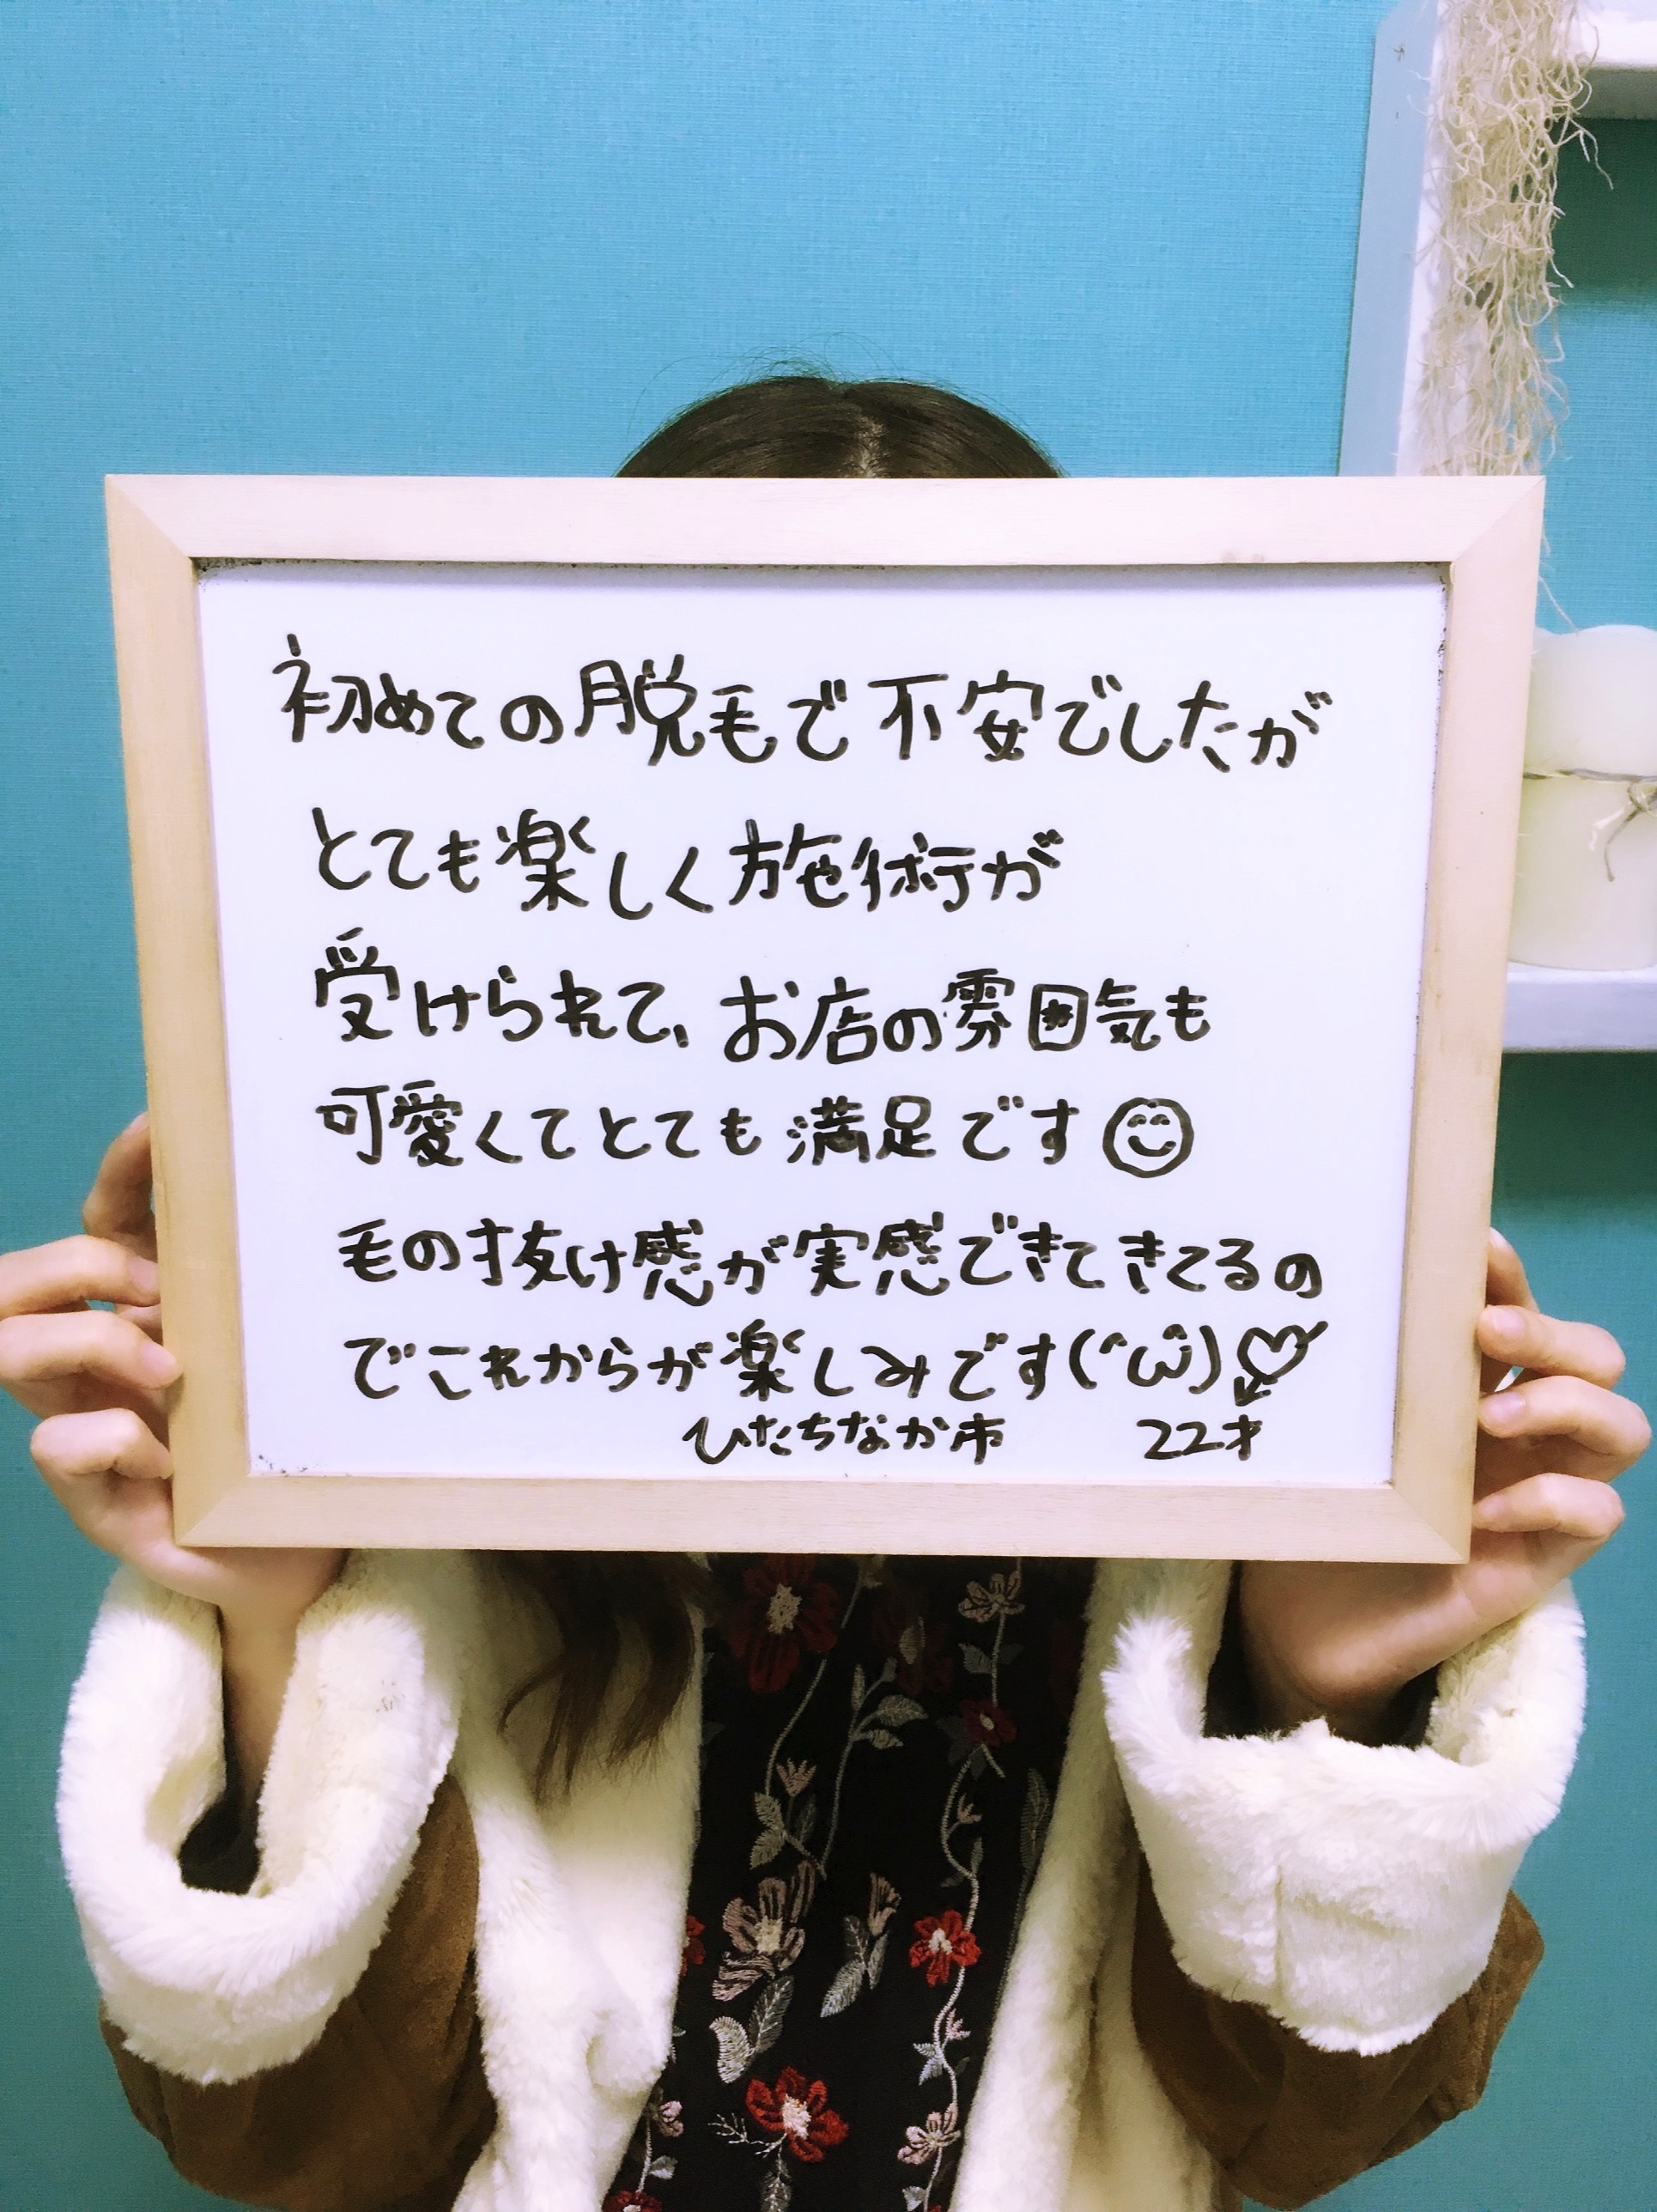 初めての脱毛で不安でしたが
とても楽しく施術が
受けられて、お店の雰囲気も
可愛くてとても満足です☺
毛の抜け感が実感できてきてるの
でこれからが楽しみです(^ω^)♡
ひたちなか市 22才